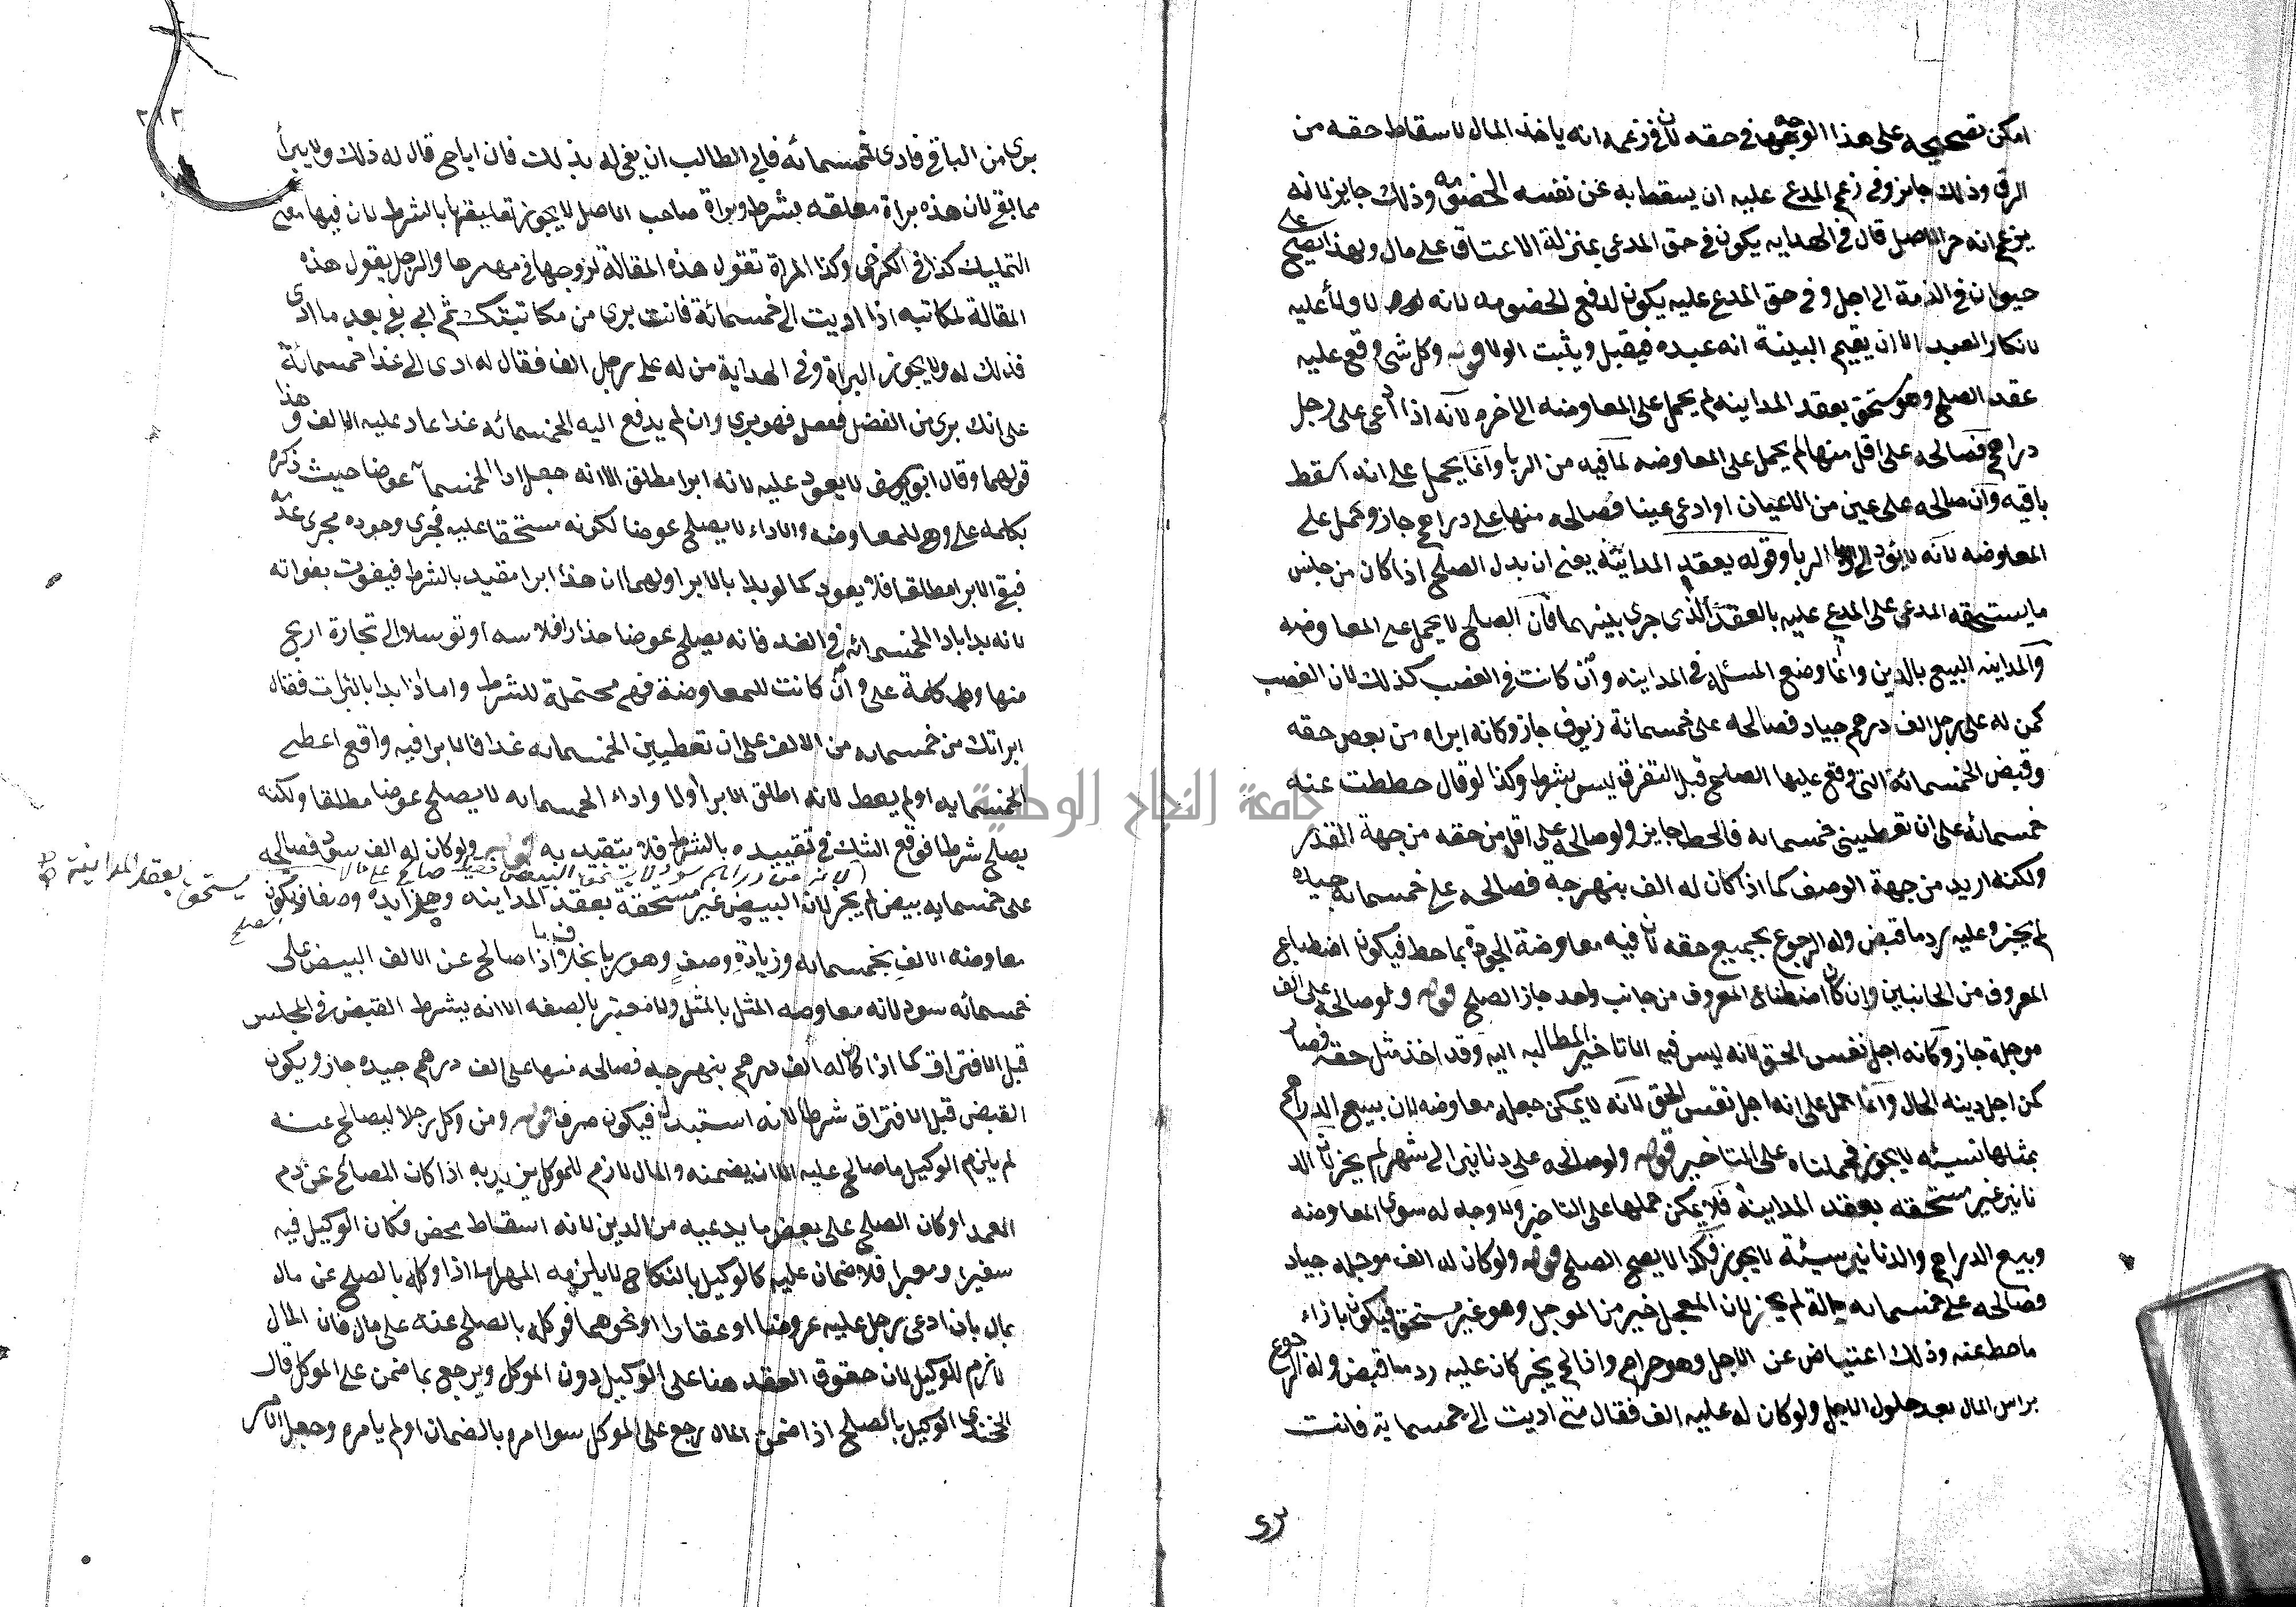 امكن تصحيحه على هذا الوجه في حقه لان في زعمه انه ياخذ المال لاسقاط حقه من
الرق وذلك جايز وفي زعم المدعى عليه ان يسقط به عن نفسه الخصومه وذلك جايز لانه
يزعم انه حر الاصل قال في الهدايه يكون في حق المدعي بمنزلة الاعتاق على مال ولهذا يصح على
حيوان في الذمة الى اجل وفي حق المدعى عليه يكون لدفع الخصومه لانه لا ولاء عليه
لانكار العبد الا ان يقيم البينة انه عبده فيقبل ويثبت الولا قوله وكل شي وقع عليه
عقد الصلح وهو مستحق بعقد المداينه لم يحمل على المعاوضه الى اخره لانه اذا ادعى على رجل
دراهم فصالحه على اقل منها لم يحمل على المعاوضه لما فيه من الربا وانما يحمل على انه اسقط
باقيه وان صالحه على عين من الاعيان او ادعى عينا فصالحه منها على دراهم جاز وحمل على
المعاوضه لانه لا يؤدي الى الربا وقوله بعقد المداينة يعني ان بدل الصلح اذا كان من جنس
ما يستحقه المدعي على المدعى عليه بالعقد الذي جرى بينهما فان الصلح لا يحمل على المعاوضه
والمداينه البيع بالدين وانما وضع المسئلة في المداينه وان كانت في الغصب كذلك لان الغصب
كمن له على رجل الف درهم جياد فصالحه على خمسمائة زيوف جاز وكانه ابراه من بعض حقه
وقبض الخمسمائة التي وقع عليها الصلح قبل التفرق ليس بشرط وكذا لو قال حططت عنه
خمسمائه على ان تعطيني خمسمايه فالحط جايز ولو صالحه على اقل من حقه من جهة القدر
ولكنه ازيد من جهة الوصف كما اذا كان له الف بنهرجة فصالحه على خمسمائة جياد
لم يجز وعليه رد ما قبض وله الرجوع بجميع حقه لان فيه معاوضة الجودة بما حط فيكون اصطناع
المعروف من الجانبين وان كان اصطناع المعروف من جانب واحد جاز الصلح قوله ولو صالحه على الف
موجلة جاز وكانه اجل نفس الحق لانه ليس فيه الا تاخير المطالبه اليه وقد اخذ مثل حقه فصار
كمن اجل دينه الحال وانما حمل على انه اجل نفس الحق لانه لا يمكن جعله معاوضه لان بيع الدراهم
بمثلها نسيئه لا يجوز فحملناه على التاخير قوله ولو صالحه على دنانير الى شهر لم يجز لان الد
نانير غير مستحقه بعقد المداينة فلا يمكن حملها على التاخير ولا وجه له سوى المعاوضه
وبيع الدراهم والدنانير نسيئة لا يجوز فكذا لا يصح الصلح قوله ولو كان له الف موجله جياد
فصالحه على خمسمايه حالة لم يجز لان المعجل خير من الموجل وهو غير مستحق فيكون بازاء
ما حط عنه وذلك اعتياض عن الاجل وهو حرام واذا لم يجز كان عليه رد ما قبض وله الرجوع
براس المال بعد حلول الاجل ولو كان له عليه الف فقال متى اديت الي خمسماية فانت
٢١٢
بري من الباقي فادى خمسمائه فابى الطالب ان يفي له بذلك فان اباح قال له ذلك ولا يبرأ
مما بقي لان هذه براة معلقه بشرط وبراة صاحب الاصل لا يجوز تعليقها بالشرط لان فيها معنى
التمليك كذا في الكرخي وكذا المراة تقول هذه المقالة لزوجها في مهرها والرجل يقول هذه
المقالة لمكاتبه اذا اديت الي خمسمائة فانت بري من مكاتبتك ثم ابى بعد ما ادى
فذلك له ولا يجوز البراة وفي الهداية من له على رجل الف فقال له ادى الي غدا خمسمائة
على انك بري من الفضل ففعل فهو بري وان لم يدفع اليه الخمسمائه غدا عاد عليه الالف وهذا
قولهما وقال ابو يوسف لا يعود عليه لانه ابرا مطلق الا انه جعل ادا الخمسمائه عوضا حيث ذكره
بكلمة على وهي للمعاوضه والاداء لا يصلح عوضا لكونه مستحقا عليه فجرى وجوده مجرى عدمه
فبقي الابرا مطلقا فلا يعود كما لو بدا بالابرا ولهما ان هذا ابرا مقيد بالشرط فيفوت بفواته
لانه بدا بادا الخمسمائه في الغد فانه يصلح عوضا حذار افلاسه او توسلا الى تجارة اربح
منها وكلمة على وان كانت للمعاوضة فهي محتملة للشرط واما اذا بدا بالبراة فقال
ابراتك من خمسمايه من الالف على ان تعطيني الخمسمايه غدا فالابرا فيه واقع اعطى
الخمسمايه او لم يعط لانه اطلق الابرا اولا واداء الخمسمايه لا يصلح عوضا مطلقا ولكنه
يصلح شرطا فوقع الشك في تقييده بالشرط فلا يتقيد به قوله ولو كان له الف سود فصالحه
على خمسمايه بيض لم يجز لان البيض غير مستحقة بعقد المداينه وهي زايده وصفا فيكون
يستحق بعقد المداينة
معاوضه الالف بخمسمايه وزيادة وصف وهو ربا بخلاف ما اذا صالح عن الالف البيض على
خمسمائه سود لانه معاوضه المثل بالمثل ولا معتبر بالصفه الا انه يشترط القبض في المجلس
قبل الافتراق كما اذا كان له الف درهم بنهرجه فصالحه منها على الف درهم جيده جاز ويكون
القبض قبل الافتراق شرطا لانه استبدال فيكون صرفا قوله ومن وكل رجلا ليصالح عنه
لم يلزم الوكيل ما صالح عليه الا ان يضمنه والمال لازم للموكل يريد به اذا كان المصالح عن دم
العمد او كان الصلح على بعض ما يدعيه من الدين لانه اسقاط محض فكان الوكيل فيه
سفيرا ومعبرا فلا ضمان عليه كالوكيل بالنكاح لا يلزمه المهر اما اذا وكله بالصلح عن مال
بمال بان ادعى رجل عليه عروضا او عقارا او نحوهما فوكله بالصلح عنه على مال فان المال
لازم للوكيل لان حقوق العقد هنا على الوكيل دون الموكل ويرجع بما ضمن على الموكل قال
الخجندي الوكيل بالصلح اذا ضمن المال يرجع على الموكل سوا امره بالضمان او لم يامره وجعل الامر
جامعة النجاح الوطنية